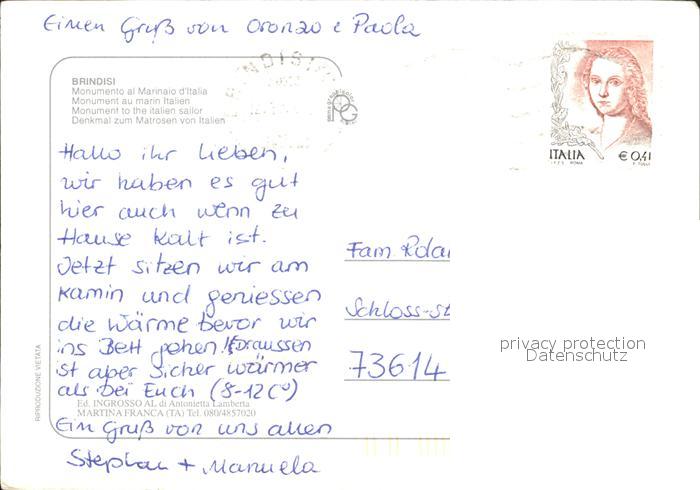 Einen Gruß von Oronzo e Paola
BRINDISI
Monumento al Marinaio d'Italia
Monument au marin Italien
Monument to the italien sailor
Denkmal zum Matrosen von Italien
BRINDISI
Hallo ihr lieben,
wir haben es gut
hier auch wenn zu
Hause kalt ist.
Jetzt sitzen wir am
Kamin und geniessen
die Wärme bevor wir
ins Bett gehen! Draussen
ist aber sicher wärmer
als bei Euch (8-12 C°)
Ed. INGROSSO AL di Antonietta Lamberta
MARTINA FRANCA (TA) Tel. 080/4857020
Ein Gruß von uns allen
Stephan + Manuela
RIPRODUZIONE VIETATA
ITALIA € 0,41
Fam. Rola
Schloss-st
73614
privacy protection
Datenschutz